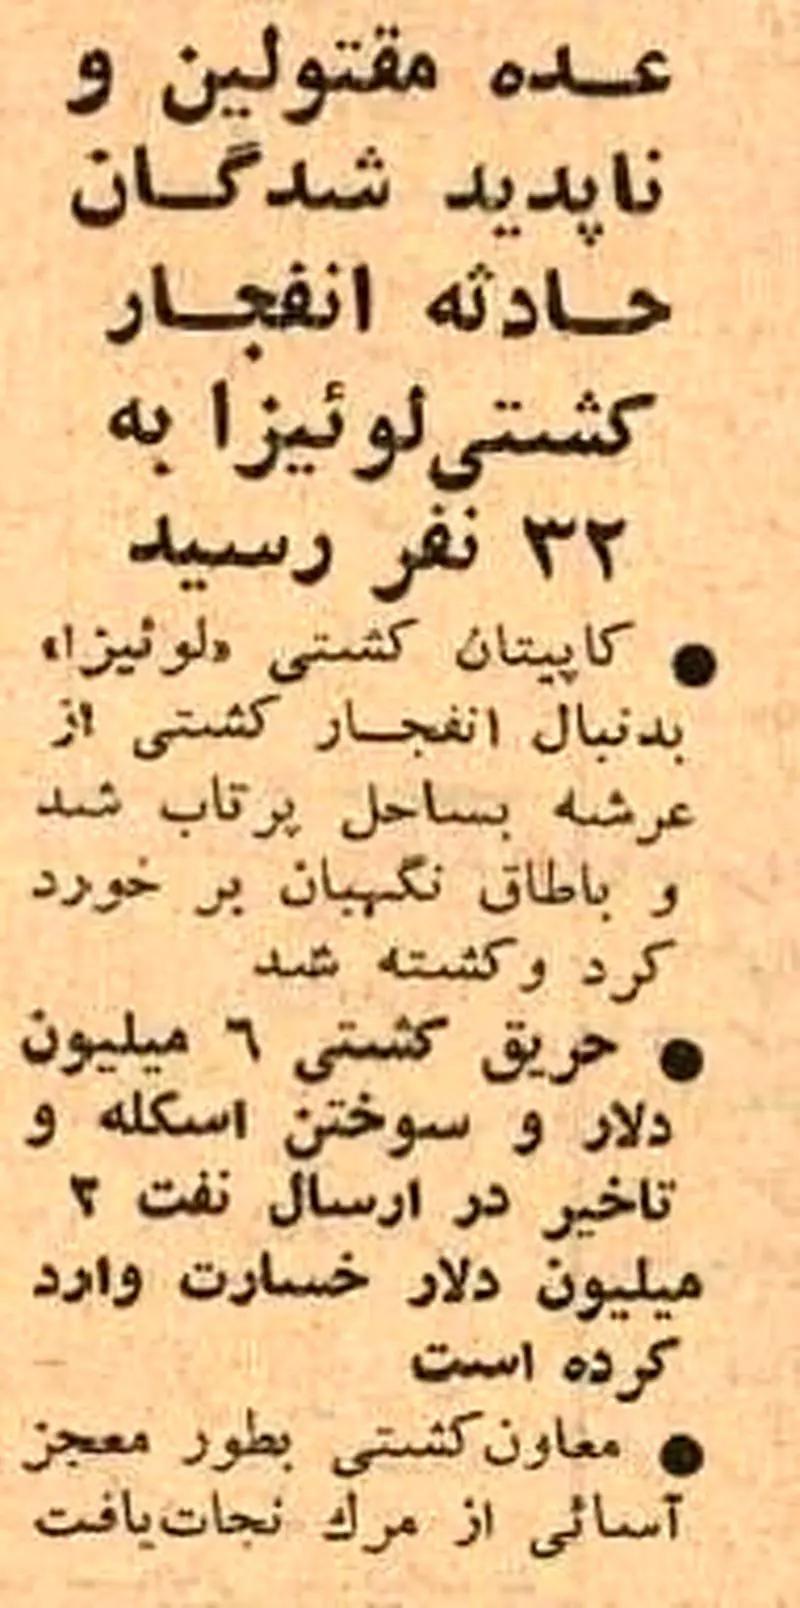 عده مقتولین و
ناپدید شدگان
حادثه انفجار
کشتی لوئیزا به
۳۲ نفر رسید
● کاپیتان کشتی «لوئیزا»
بدنبال انفجار کشتی از
عرشه بساحل پرتاب شد
و باطاق نگهبان بر خورد
کرد و کشته شد
● حریق کشتی ٦ میلیون
دلار و سوختن اسکله و
تاخیر در ارسال نفت ۲
میلیون دلار خسارت وارد
کرده است
● معاون کشتی بطور معجز
آسائی از مرك نجات یافت